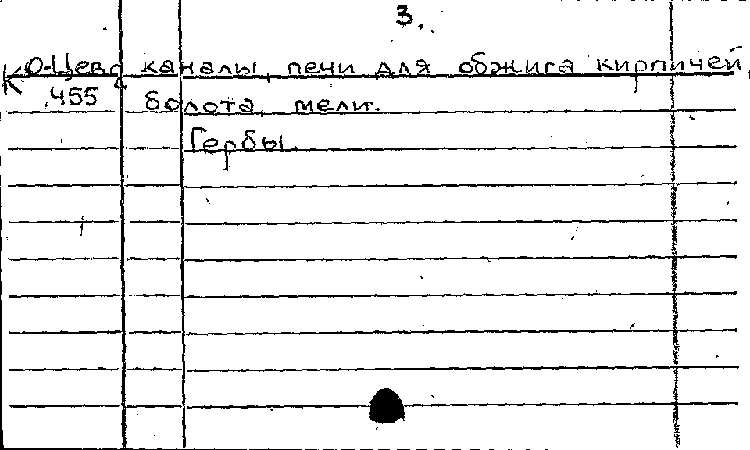 3.
КО-Цева каналы, печи для обжига кирпичей,
455 болота, мели.
Гербы.